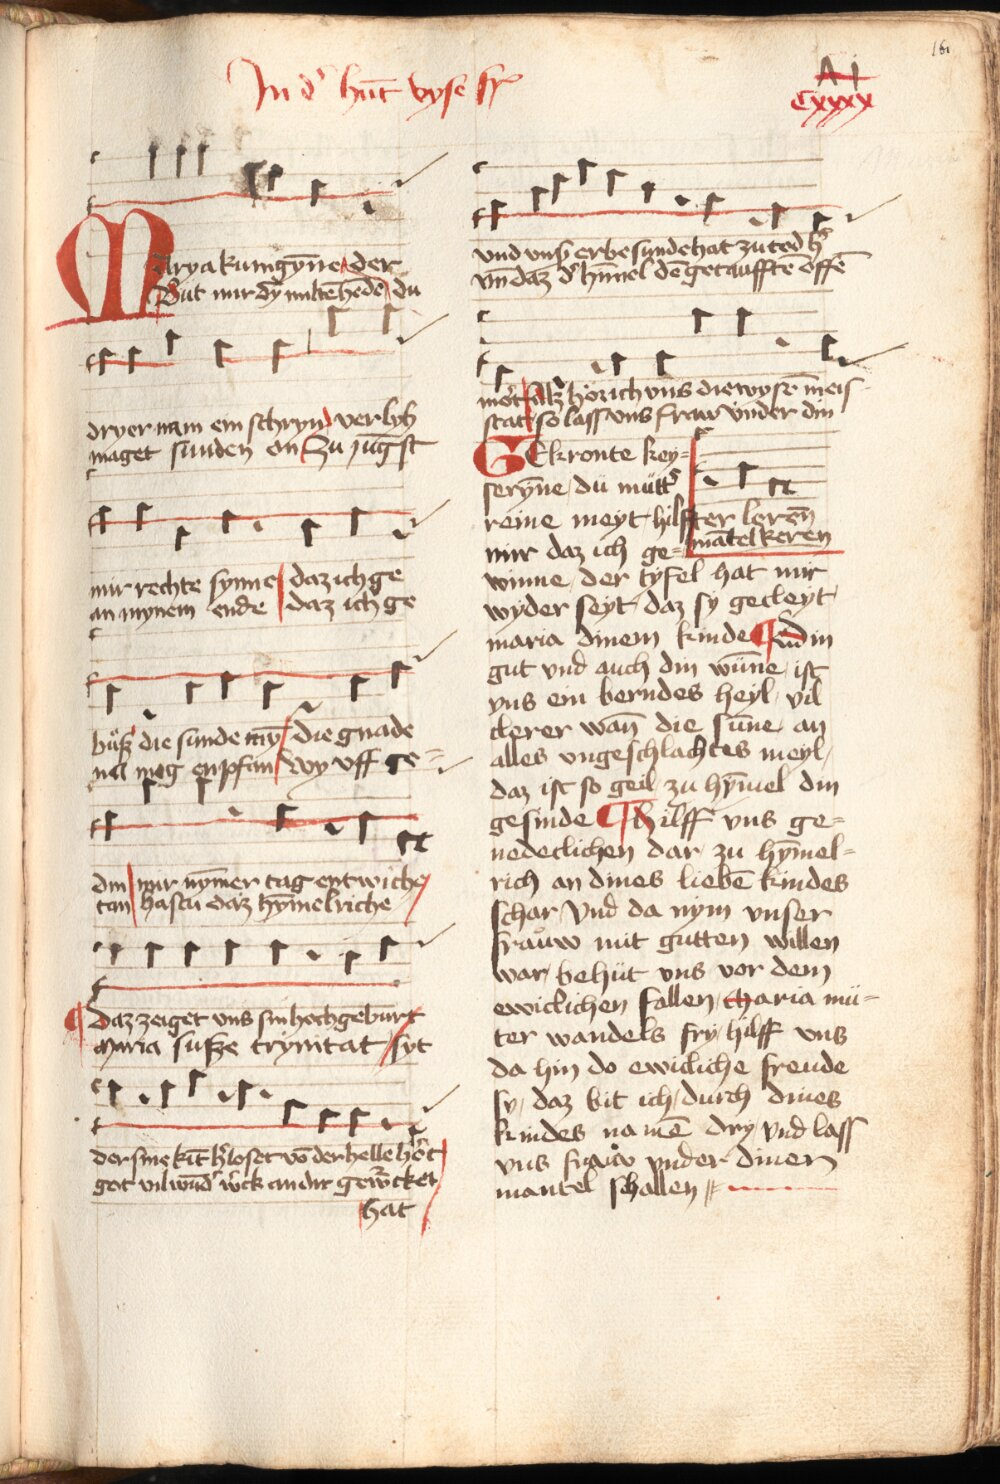 161
In d' hūt wyse fr
A j
Cxxxx
Marya kunigȳne der
But mir dȳ milten hēde du
dryer nam ein schryn verlyh
maget sunden on Zu jūgst
mir rechte synne daz ich ge
an mynem ende daz ich ge
büß die sunde mȳ die gnade
nel mog enpfan Wy uff ge=
din mir nȳmer tag entwiche
tan hastu daz hȳmelriche
Daz zeiget uns sin hochgeburt
Maria susze trynitat syt
der sine kīt h'loset vō der helle
got vil wūd' w'ck an dir gew'cket
hat
und unß erbe sunde hat zu tod
Vn̄ daz d' himel dē getaufftē offē
hör ich uns die wyse meis
stat so lass uns fraw under din
ter leren
mātel keren
GEkronte key=
serȳne du mütt'
reine meyt hilff
mir daz ich ge=
winne der tyfel hat mir
wyder seyt daz sy gecleyt
maria dinem kinde din
gut und auch din wūne ist
uns ein berndes heyl vil
clerer wan̄ die sūne an
alles ungeschlachtes meyl
daz ist so geil zu hȳmel din
gesinde hilff uns ge=
nedeclichen dar zu hȳmel=
rich an dines liebē kindes
schar Und da nym unser
frauw mit gutten willen
war behüt uns vor dem
ewiclichen fallen maria mü=
ter wandels fry hilff uns
da hin do ewicliche freude
sy daz bit ich durch dines
kindes namē dry und lass
uns frauw under dinen
mantel schallen